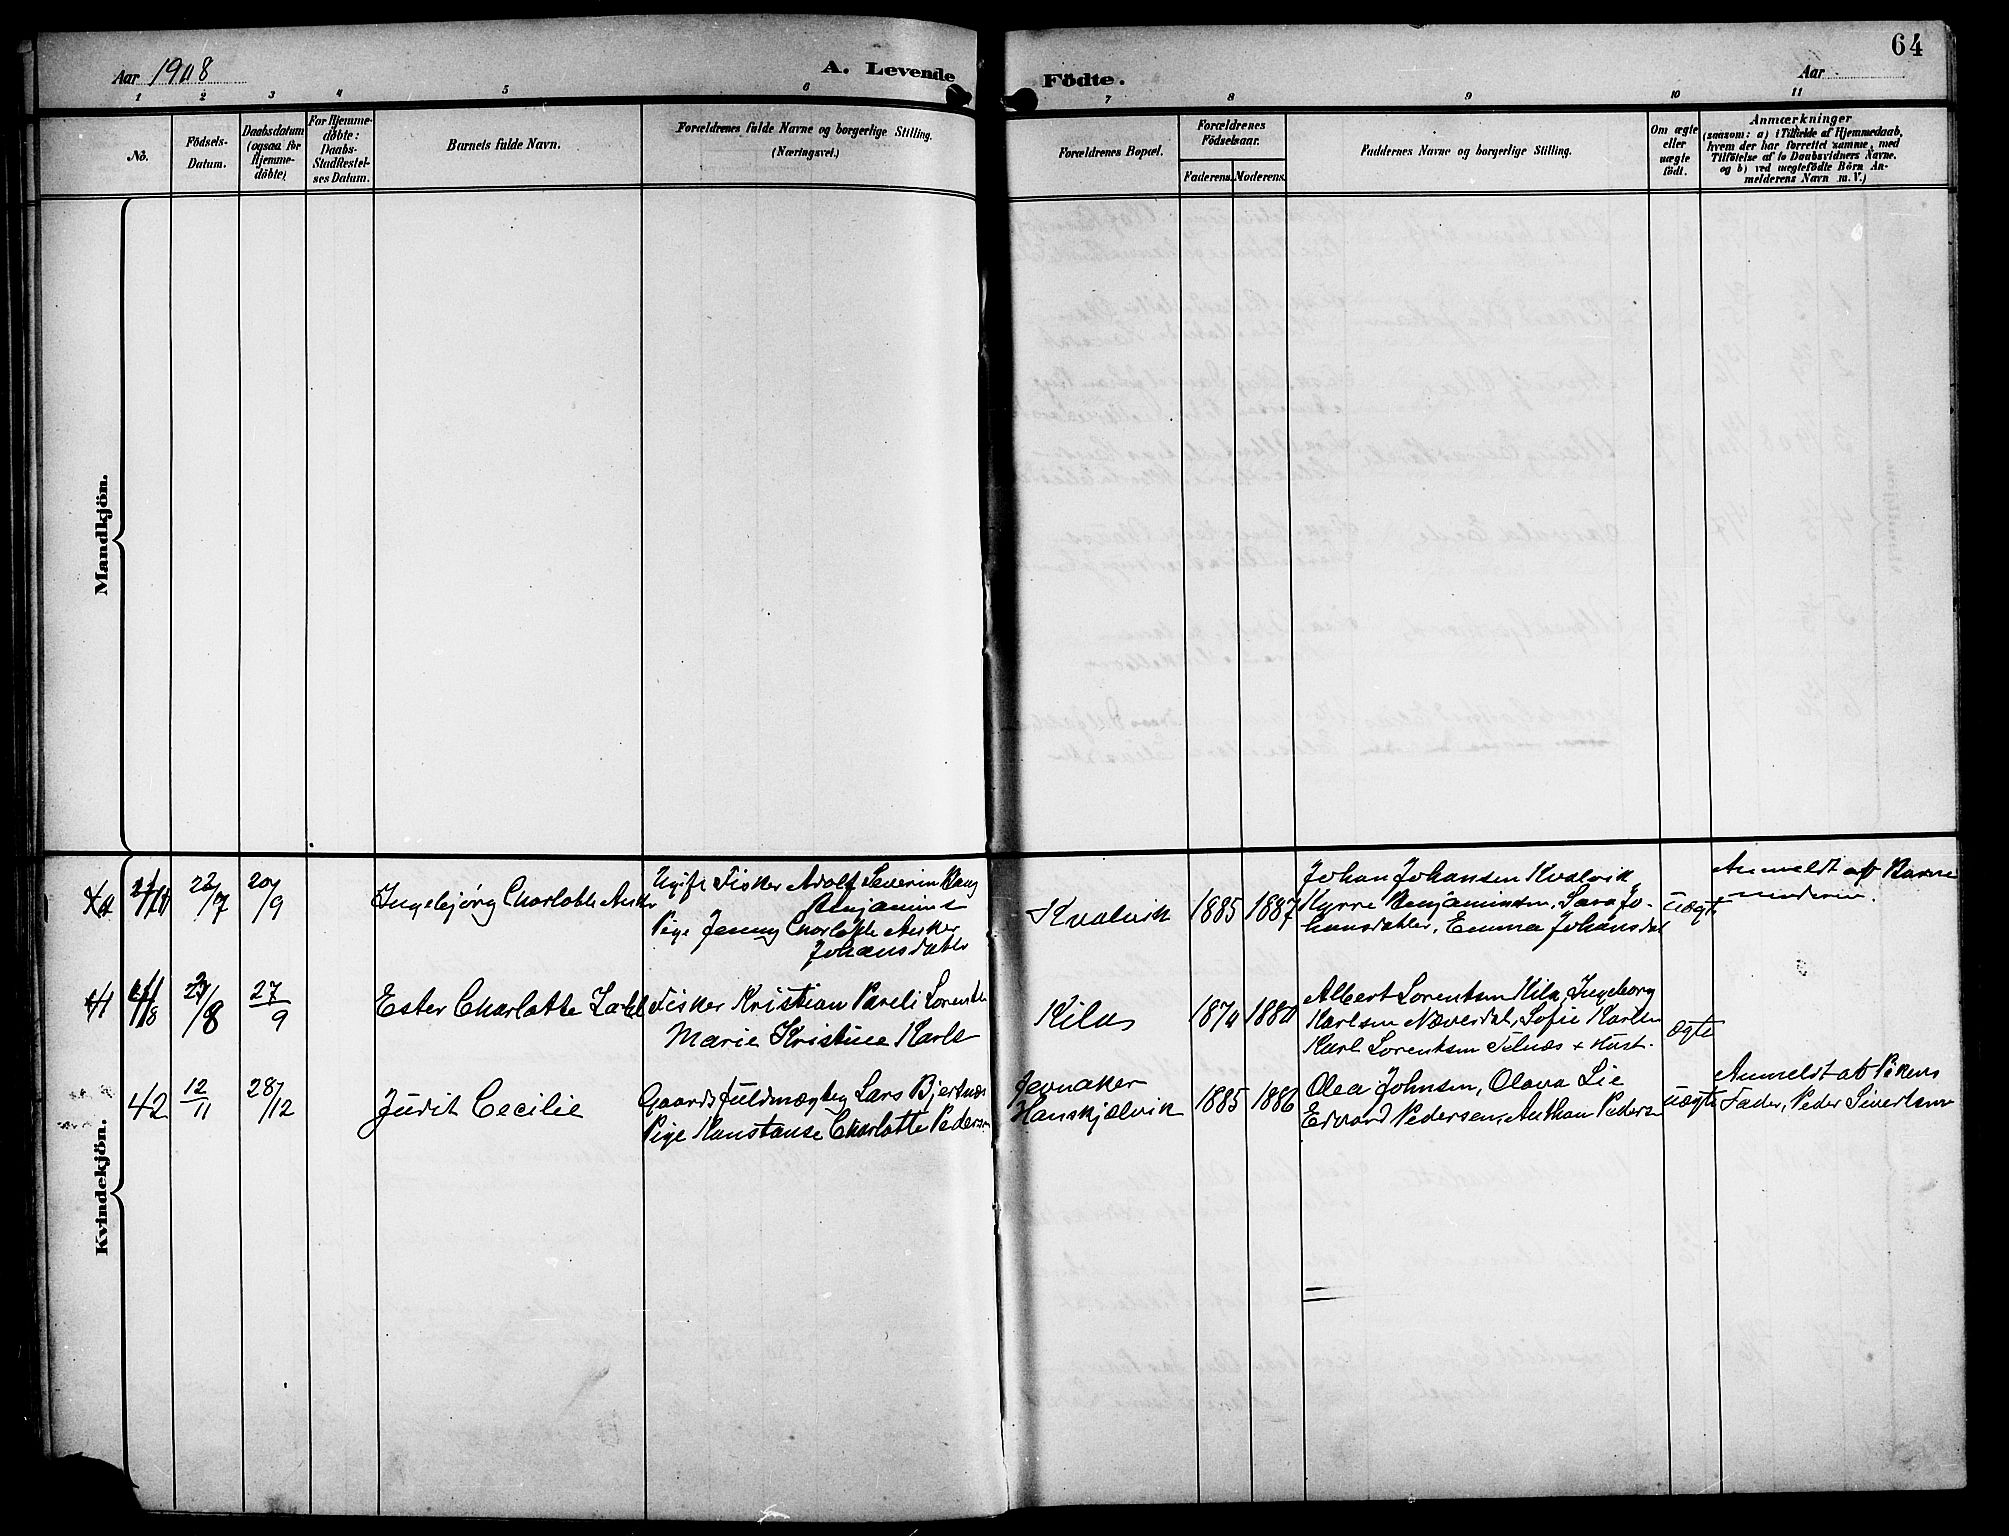 64
Aar 1908
A. Levende
Födte.
Aar
1 2 3 4 5 6 7 8 9 10 11
No.
Födsels-
Datum.
Daabsdatum
(ogsaa for
Hjemme-
döbte)
For Hjemme-
döbte:
Daabs-
Stadfestel-
ses Datum.
Barnets fulde Navn.
Forældrenes fulde Navne og borgerlige Stilling.
(Næringsvei.)
Forældrenes Bopæl.
Forældrenes
Födselsaar.
Faderens.
Moderens.
Faddernes Navne og borgerlige Stilling.
Om ægte
eller
uægte
födt.
Anmærkninger
(saasom: a) i Tilfælde af Hjemmedaab,
hvem der har forrettet samme, med
Tilföielse af to Daabsvidners Navne.
og b) ved uægtefödte Börn An-
melderens Navn m. V.)
Mandkjön.
Kvindekjön.
22/7
20/9
Ingebjørg Charlotte
Ugift Fisker Adolf Severin
Benjamins
Pige Jenny Charlotte
Johansdatter
Kvalvik
1885
1887
Johan Johansen Kvalvik
Kyrre Benjaminsen, Sara Jo-
hansdatter, Emma Johansdat
uægte
Anmeldt af Barne
moderen.
27/9
Ester Charlotte
Fisker Kristian Pareli Lorents
Marie Kristine Karls
Kila
1874
1880
Albert Lorentsen Kila, Ingeborg
Karlsen Næverdal, Sofie Karlsen
Karl Lorentsen + Hust.
ægte
42
12/11
28/12
Judit Cecilie
Gaardsfuldmægtig Lars Bjertnæs
Pige Konstanse Charlotte Pedersen
Jevnaker
Hanskjælvik
1885
1886
Olea Johnsen, Olava Lie
Edvard Pedersen, Anthon Pedersen
uægte
Anmeldt af Pikens
Fader, Peder Sivertsen